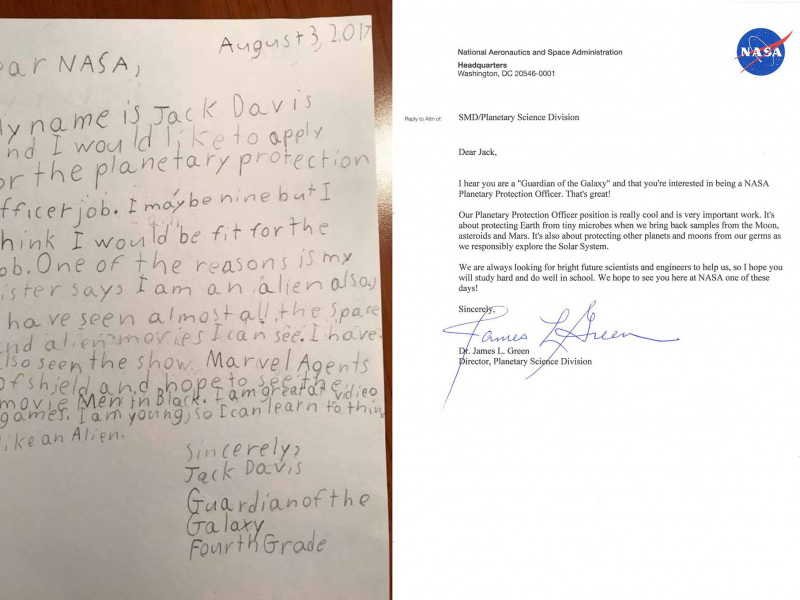 August 3, 2017
ear NASA,
y name is Jack Davis
nd I would like to apply
or the planetary protection
fficer job. I may be nine but I
hink I would be fit for the
ob. One of the reasons is my
ister says I am an alien also,
have seen almost all the space
nd alien movies I can see. I have
lso seen the show Marvel Agents
of shield and hope to see the
movie Men in Black. I am great at vidieo
games. I am young, so I can learn to thin
like an Alien.
Sincerely,
Jack Davis
Guardian of the
Galaxy
Fourth Grade
National Aeronautics and Space Administration
Headquarters
Washington, DC 20546-0001
NASA
Reply to Attn of: SMD/Planetary Science Division
Dear Jack,
I hear you are a "Guardian of the Galaxy" and that you're interested in being a NASA
Planetary Protection Officer. That's great!
Our Planetary Protection Officer position is really cool and is very important work. It's
about protecting Earth from tiny microbes when we bring back samples from the Moon,
asteroids and Mars. It's also about protecting other planets and moons from our germs as
we responsibly explore the Solar System.
We are always looking for bright future scientists and engineers to help us, so I hope you
will study hard and do well in school. We hope to see you here at NASA one of these
days!
Sincerely,
James L Green
Dr. James L. Green
Director, Planetary Science Division